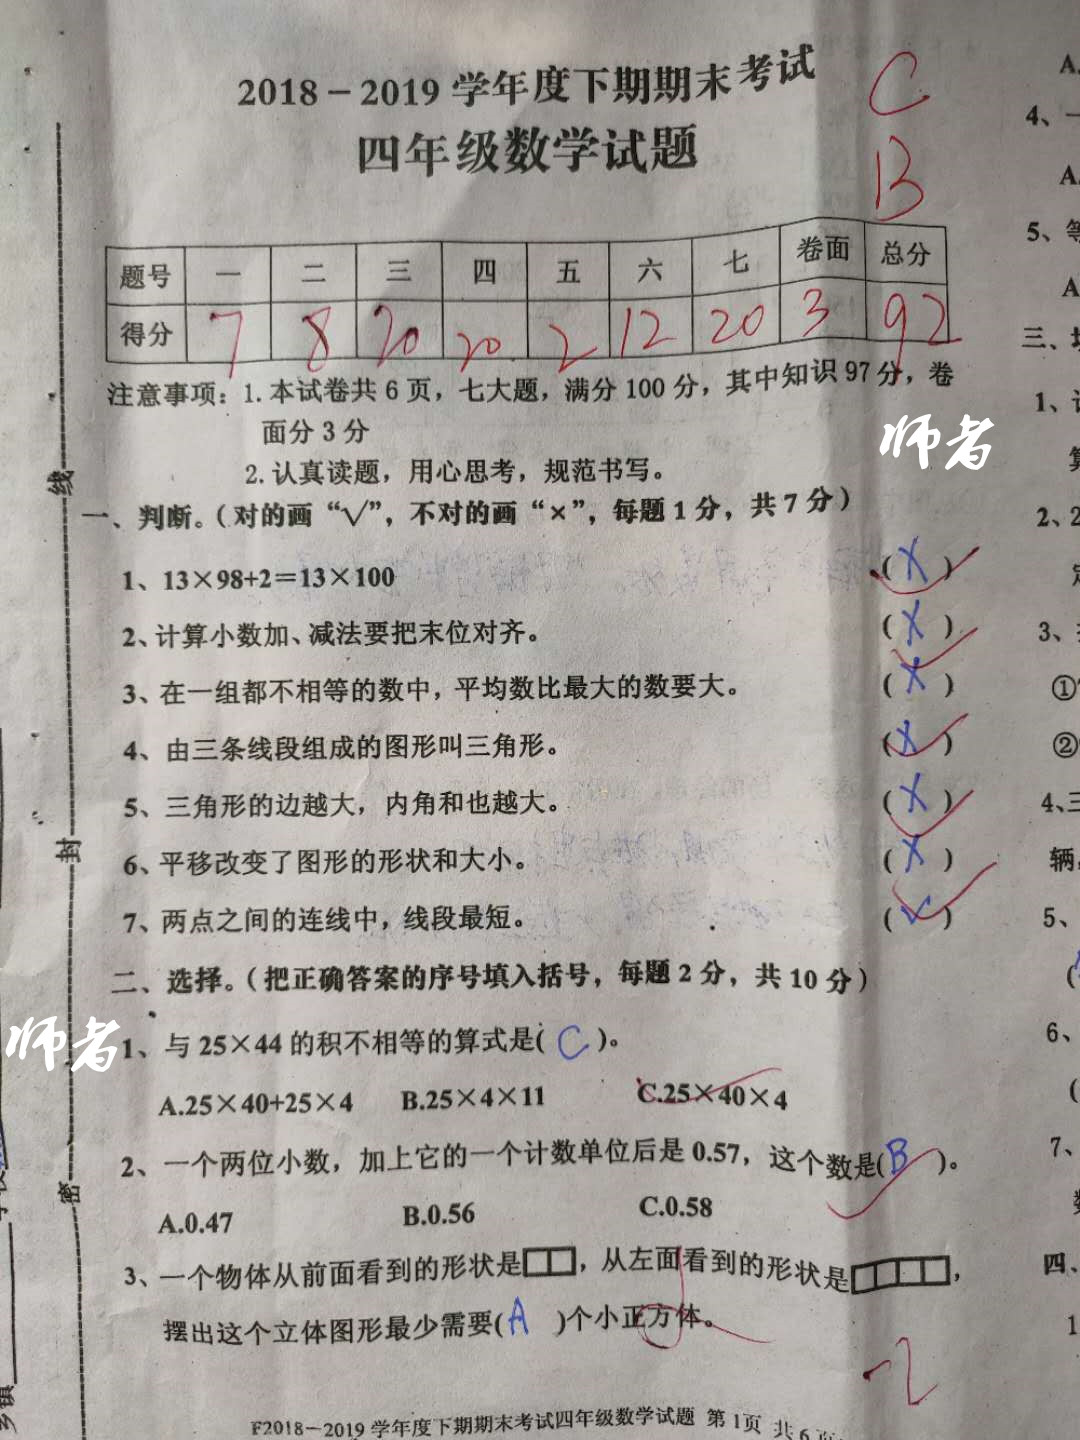 2018－2019学年度下期期末考试
四年级数学试题
C
B
题号 一 二 三 四 五 六 七 卷面 总分
得分 7 8 20 20 2 12 20 3 92
注意事项：1.本试卷共6页，七大题，满分100分，其中知识97分，卷
面分3分
2.认真读题，用心思考，规范书写。
师者
一、判断。（对的画“√”，不对的画“×”，每题1分，共7分）
1、13×98+2＝13×100 (×)
2、计算小数加、减法要把末位对齐。 (×)
3、在一组都不相等的数中，平均数比最大的数要大。 (×)
4、由三条线段组成的图形叫三角形。 (×)
5、三角形的边越大，内角和也越大。 (×)
6、平移改变了图形的形状和大小。 (×)
7、两点之间的连线中，线段最短。 (✓)
二、选择。（把正确答案的序号填入括号，每题2分，共10分）
师者
1、与25×44的积不相等的算式是( C )。
A.25×40+25×4 B.25×4×11 C.25×40×4
2、一个两位小数，加上它的一个计数单位后是0.57，这个数是( B )。
A.0.47 B.0.56 C.0.58
3、一个物体从前面看到的形状是，从左面看到的形状是，
摆出这个立体图形最少需要( A )个小正方体。
-2
F2018－2019学年度下期期末考试四年级数学试题 第1页 共6页
线
封
密
乡镇
A.
4、一
A.
5、等
A
三、
1、
算
2、2
定
3、
①
②
4、三
辆
5、
(
6、
(
7、
数
四、
1